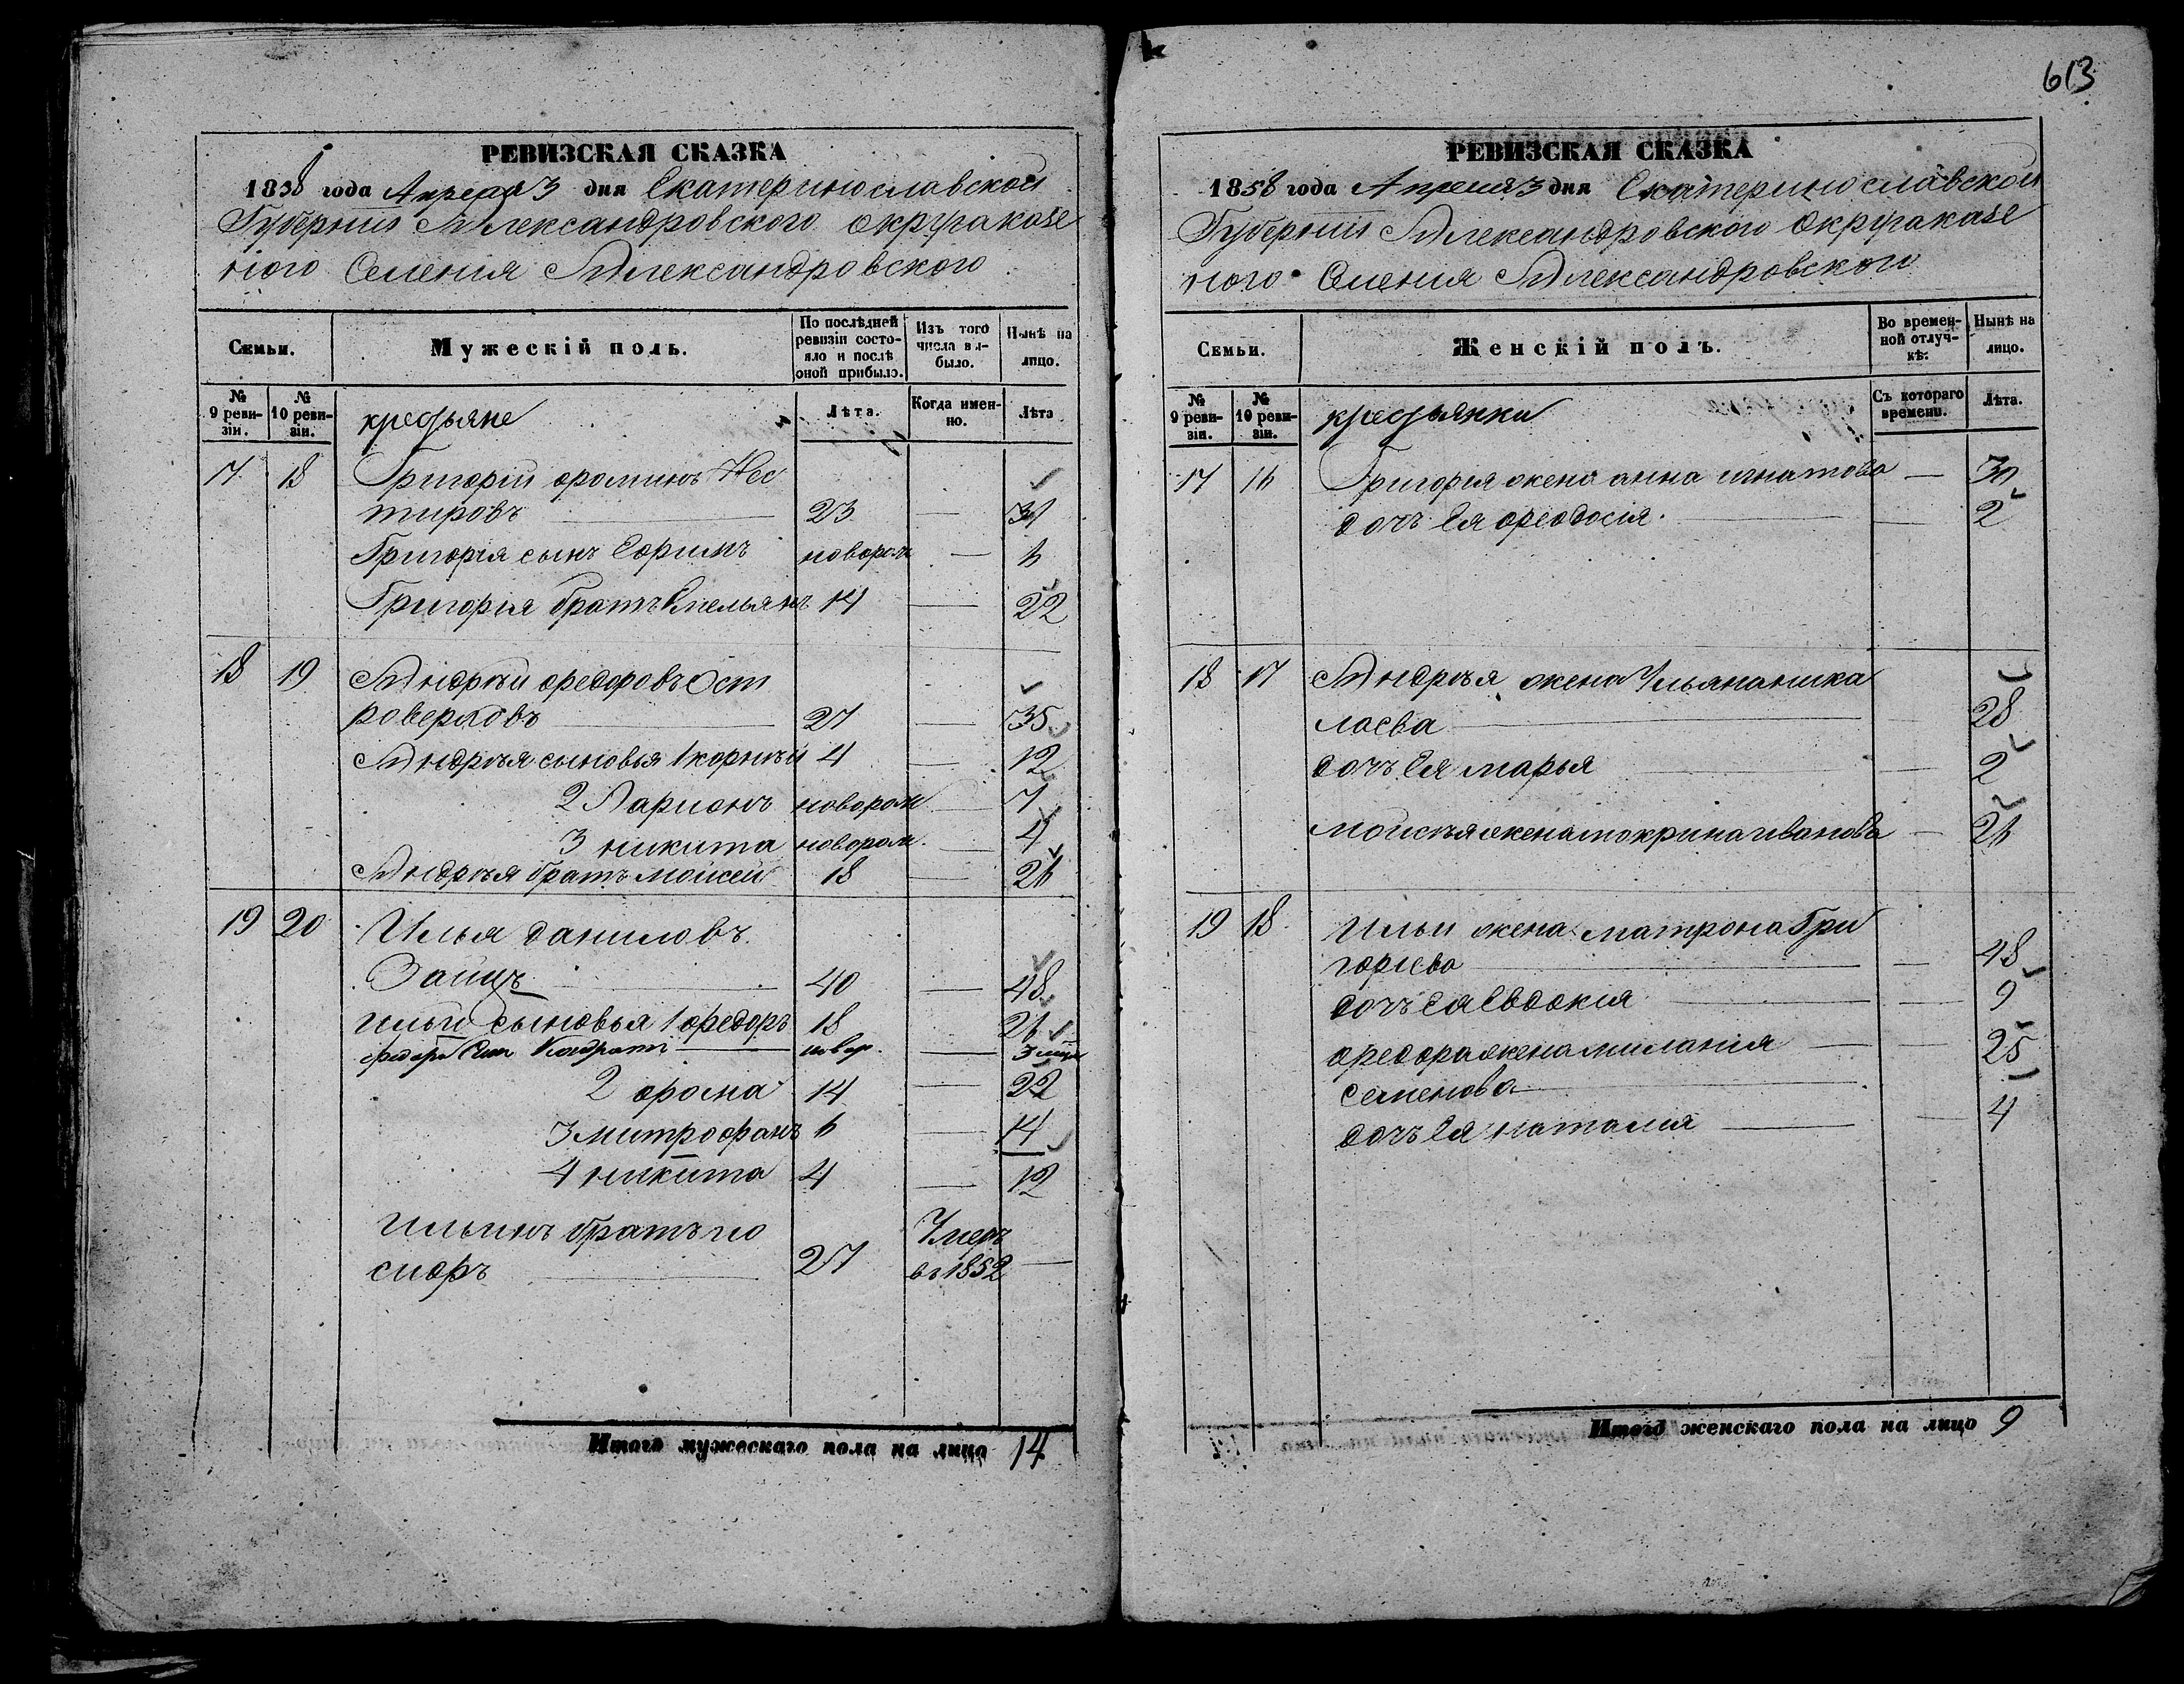 РЕВИЗСКАЯ СКАЗКА
1858 года Апреля 3 дня Екатеринославской
Губернии Александровского округа казе
ного Селения Александровского
Семьи.
Мужескій полъ.
По послѣдней ревизіи состояло и послѣ оной прибыло.
Изъ того числа выбыло.
Нынѣ на лицо.
№ 9 ревизіи.
№ 10 ревизіи.
крестьяне
Лѣта.
Когда именно.
Лѣта
17 18 Григорій фоминъ Нес
тировъ 23 — 31
Григорія сынъ Ефимъ новорож — 6
Григорія братъ Емельянъ 14 — 22
18 19 Андрѣй федоровъ Ост
роверховъ 27 — 35
Андрѣя сыновья 1 корнѣй 4 — 12
2 Ларионъ новорож — 7
3 никита новорож. — 4
Андрѣя братъ мойсей 18 — 26
19 20 Илья даниловъ
Заицъ 40 — 48
ильи сыновья 1 федоръ 18 — 26
федора сын Кондратъ новор. — 3 мѣс
2 фома 14 — 22
3 митрофанъ 6 — 14
4 никита 4 — 12
ильинъ братъ ио
сифъ 27 Умеръ в 1852 —
Итого мужескаго пола на лицо 14
613
РЕВИЗСКАЯ СКАЗКА
1858 года Апреля 3 дня Екатеринославской
Губернии Александровского Округа казе
ного Селения Александровского
Семьи.
Женскій полъ.
Во временной отлучкѣ.
Нынѣ на лицо.
№ 9 ревизіи.
№ 10 ревизіи.
крестьянки
Съ котораго времени.
Лѣта.
17 16 Григорія жена анна игнатова — 30
дочъ Ея феодосія 2
18 17 Андрѣя жена Ульяна ника
лаева 28
дочъ Ея марья — 2
мойсѣя жена мокрина иванова — 26
19 18 Ильи жена матрона Гри
горіева — 48
дочъ Ея Евдокія — 9
федора жена миланія — 25
семенова
дочъ Ея наталия — 4
Итого женскаго пола на лицо 9